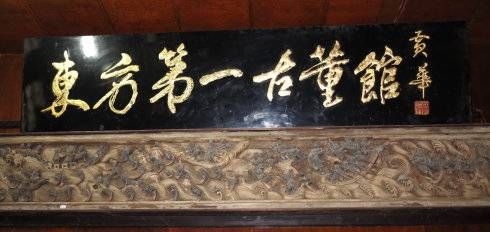 東方第一古董館
黄華